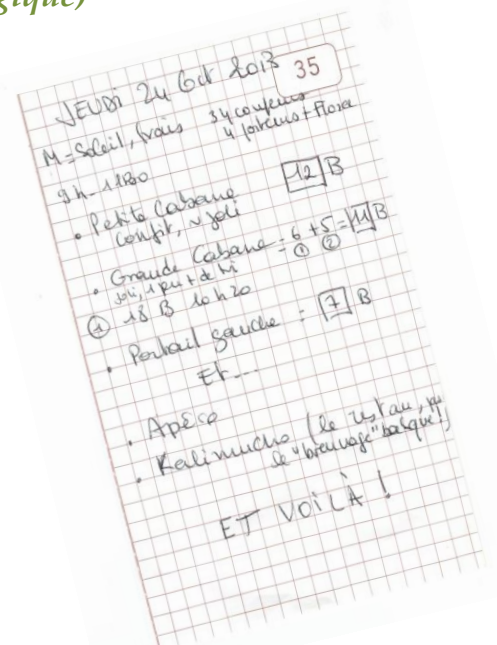 gique)
35
JEUDI 24 Oct 2013
M = Soleil, frais 34 coupeurs
4 porteurs + Flora
9h - 11h30
• Petite Cabane 12 B
confit, joli
• Grande Cabane = 6 + 5 = 11 B
joli, 1 peu + de tri ① ②
① 18 B 10h20
• Portail gauche : 7 B
Et ...
• Apéro
• Kalimucho (le
le "breuvage" basque!)
ET VOILÀ !